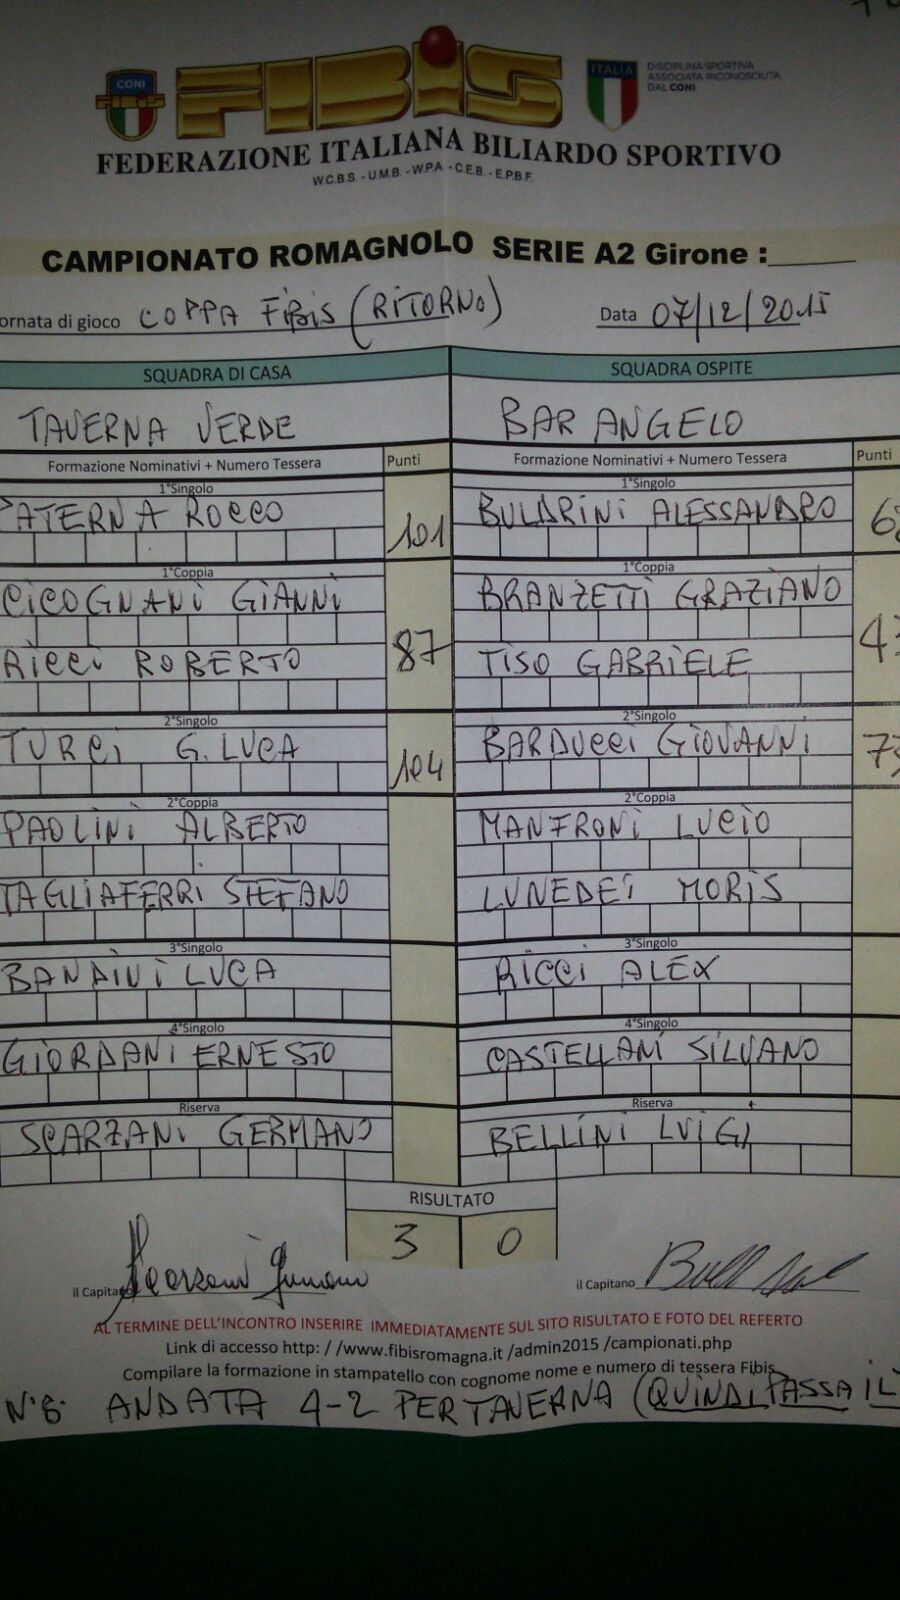 CONI
FIBiS
ITALIA
DISCIPLINA SPORTIVA
ASSOCIATA RICONOSCIUTA
DAL CONI
FEDERAZIONE ITALIANA BILIARDO SPORTIVO
W.C.B.S. - U.M.B. - W.P.A. - C.E.B. - E.P.B.F.
CAMPIONATO ROMAGNOLO SERIE A2 Girone :
ornata di gioco COPPA FIBIS (RITORNO) Data 07/12/2015
SQUADRA DI CASA SQUADRA OSPITE
TAVERNA VERDE BAR ANGELO
Formazione Nominativi + Numero Tessera Punti Formazione Nominativi + Numero Tessera Punti
1°Singolo 1°Singolo
PATERNA ROCCO 101 BULDRINI ALESSANDRO
1°Coppia 1°Coppia
CICOGNANI GIANNI BRANZETTI GRAZIANO
RICCI ROBERTO 87 TISO GABRIELE
2°Singolo 2°Singolo
TURCI G.LUCA 104 BARDUCCI GIOVANNI
2°Coppia 2°Coppia
PAOLINI ALBERTO MANFRONI LUCIO
TAGLIAFERRI STEFANO LUNEDEI MORIS
3°Singolo 3°Singolo
BANDINI LUCA RICCI ALEX
4°Singolo 4°Singolo
GIORDANI ERNESTO CASTELLANI SILVANO
Riserva Riserva
SCARZANI GERMANO BELLINI LUIGI
RISULTATO
3 0
il Capitano il Capitano
AL TERMINE DELL'INCONTRO INSERIRE IMMEDIATAMENTE SUL SITO RISULTATO E FOTO DEL REFERTO
Link di accesso http: / /www.fibisromagna.it /admin2015 /campionati.php
Compilare la formazione in stampatello con cognome nome e numero di tessera Fibis
ANDATA 4-2 PER TAVERNA (QUINDI PASSA IL